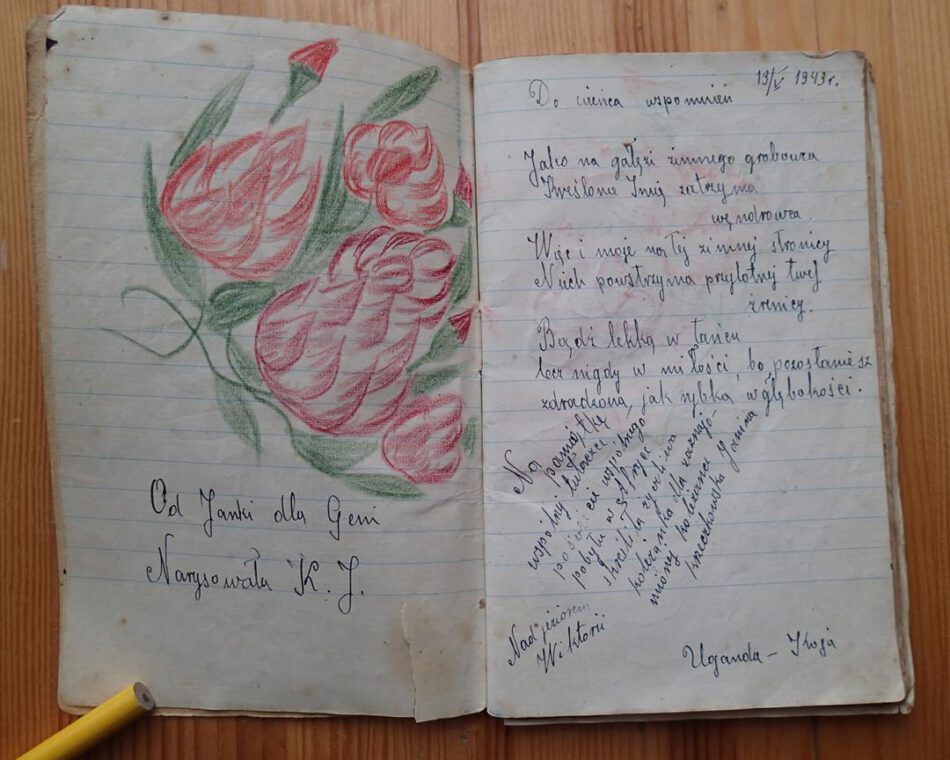 Od Janki dla Geni
Narysowała K. J.
19/V 1943r.
Do wieńca wspomnień
Jako na gałęzi zimnego grobowca
Skreślone Imię zatrzyma
wędrowca.
Więc i moje na tej zimnej stronicy
Niech powstrzyma przylotnej twej
źrenicy.
Bądź lekką w tańcu
lecz nigdy w miłości, bo pozostaniesz
zdradzona, jak rybka w głębokości.
Na pamiątkę
wspólnej tułaczki
pobytu w
kreśli życzliwa
koleżanka dla
koleżanki
Janina
Nad jeziorem
Wiktorii
Uganda – Koja